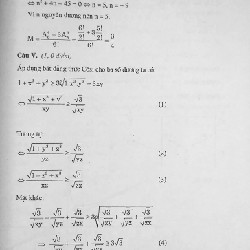 ⇔ n² + 4n − 45 = 0 ⇔ n = 5, n = −9
Vì n nguyên dương nên n = 5.
M =
Câu V. (1,0 điểm)
Áp dụng bất đẳng thức cho ba số dương ta có
1 + x³ + y³ ≥ 3∛(1·x³y³) = 3xy
⇔ √(1 + x³ + y³)/xy ≥ √3/√xy (1)
Tương tự:
⇔ √(1 + y³ + z³)/yz ≥ √3/√yz (2)
⇔ √(1 + z³ + x³)/zx ≥ √3/√zx (3)
Mặt khác
√3/√xy + √3/√yz + √3/√zx ≥ 3∛(√3/√xy · √3/√yz · √3/√zx)
⇔ √3/√xy + √3/√yz + √3/√zx ≥ 3√3 (4)